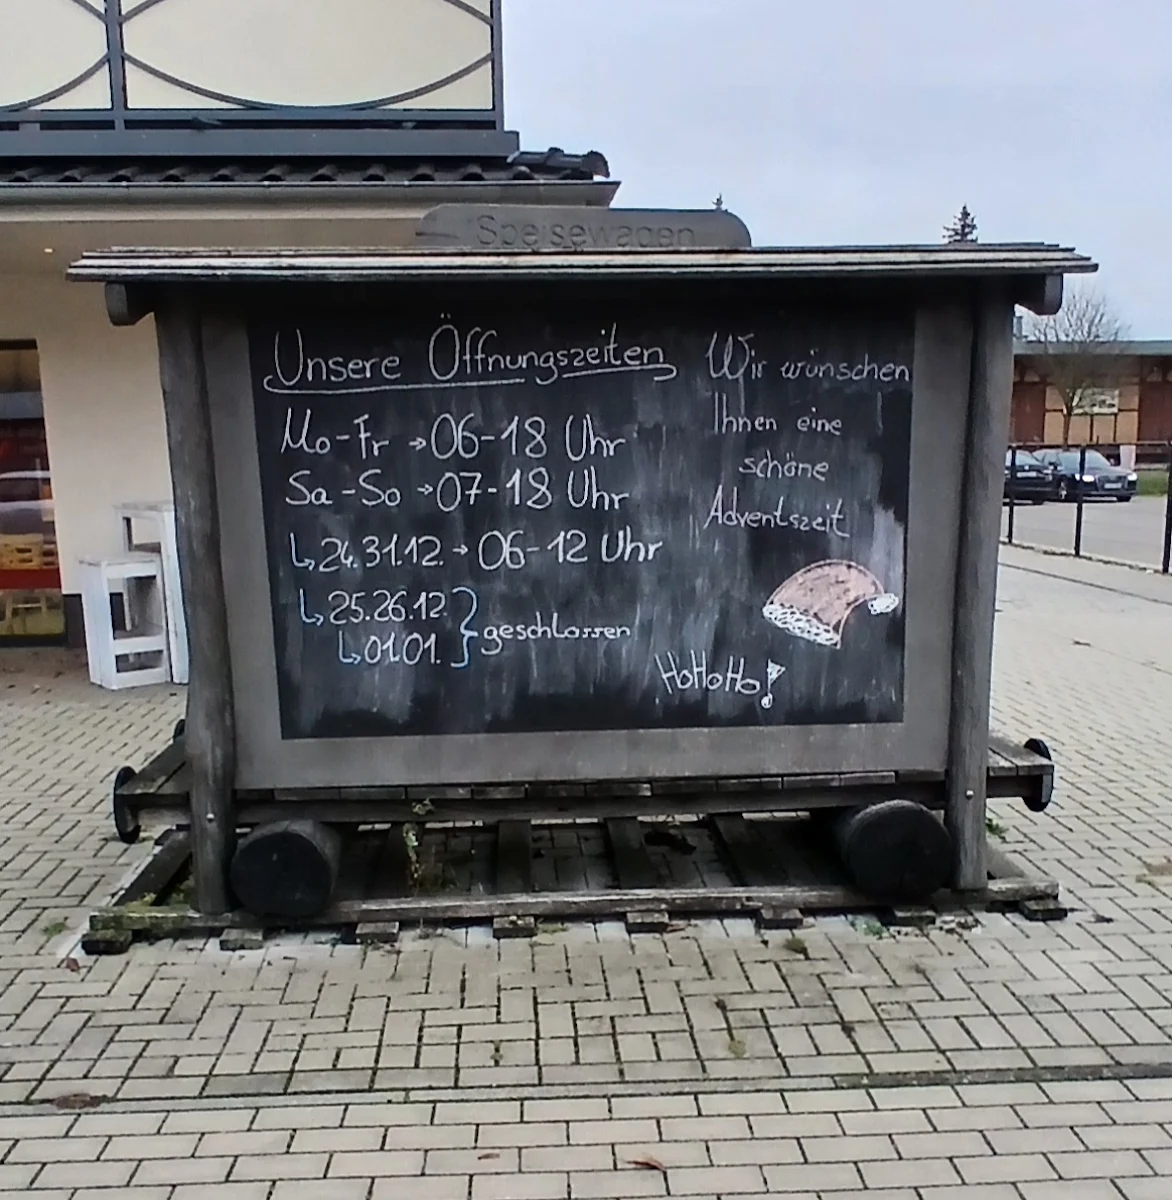 Speisewagen
Unsere Öffnungszeiten
Mo-Fr → 06-18 Uhr
Sa-So → 07-18 Uhr
↳ 24.31.12. → 06-12 Uhr
↳ 25.26.12.
↳ 01.01. } geschlossen
Wir wünschen
Ihnen eine
schöne
Adventszeit
HoHoHo!